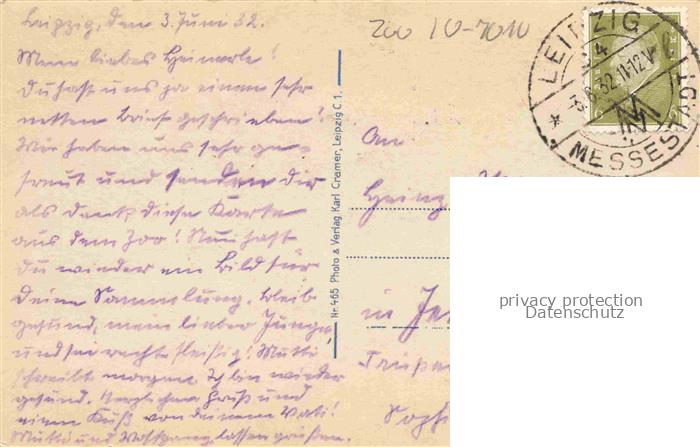 Leipzig, den 3. Juni 32.
Mein liebes Heinerle!
Du hast uns ja einen sehr
netten Brief geschrieben!
Wir haben uns sehr ge-
freut und senden Dir
als Dank diese Karte
aus dem Zoo! Nun hast
Du wieder ein Bild für
Deine Sammlung. Bleib
gesund, mein lieber Junge,
und sei recht fleißig! Mutti
schreibt morgen. Ich bin wieder
gesund. Herzlichen Gruß und
einen Kuß von deinem Vati!
Mutti und Wolfgang lassen grüßen.
Nr. 465 Photo & Verlag Karl Cramer, Leipzig C 1.
Zoo 10-7010
LEIPZIG
4
3.6.32.11-12V
MESSESTADT
An
Heinz
in Je
privacy protection
Datenschutz